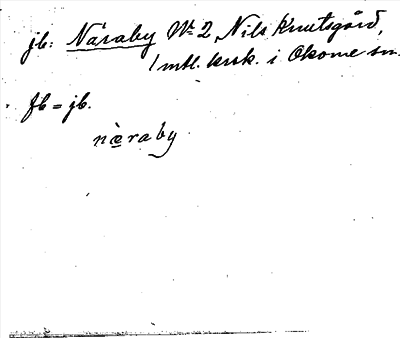 jb: Näraby Nº 2, Nils Knutsgård,
1 mtl. krk. i Okome sn.
fb = jb.
nàraby